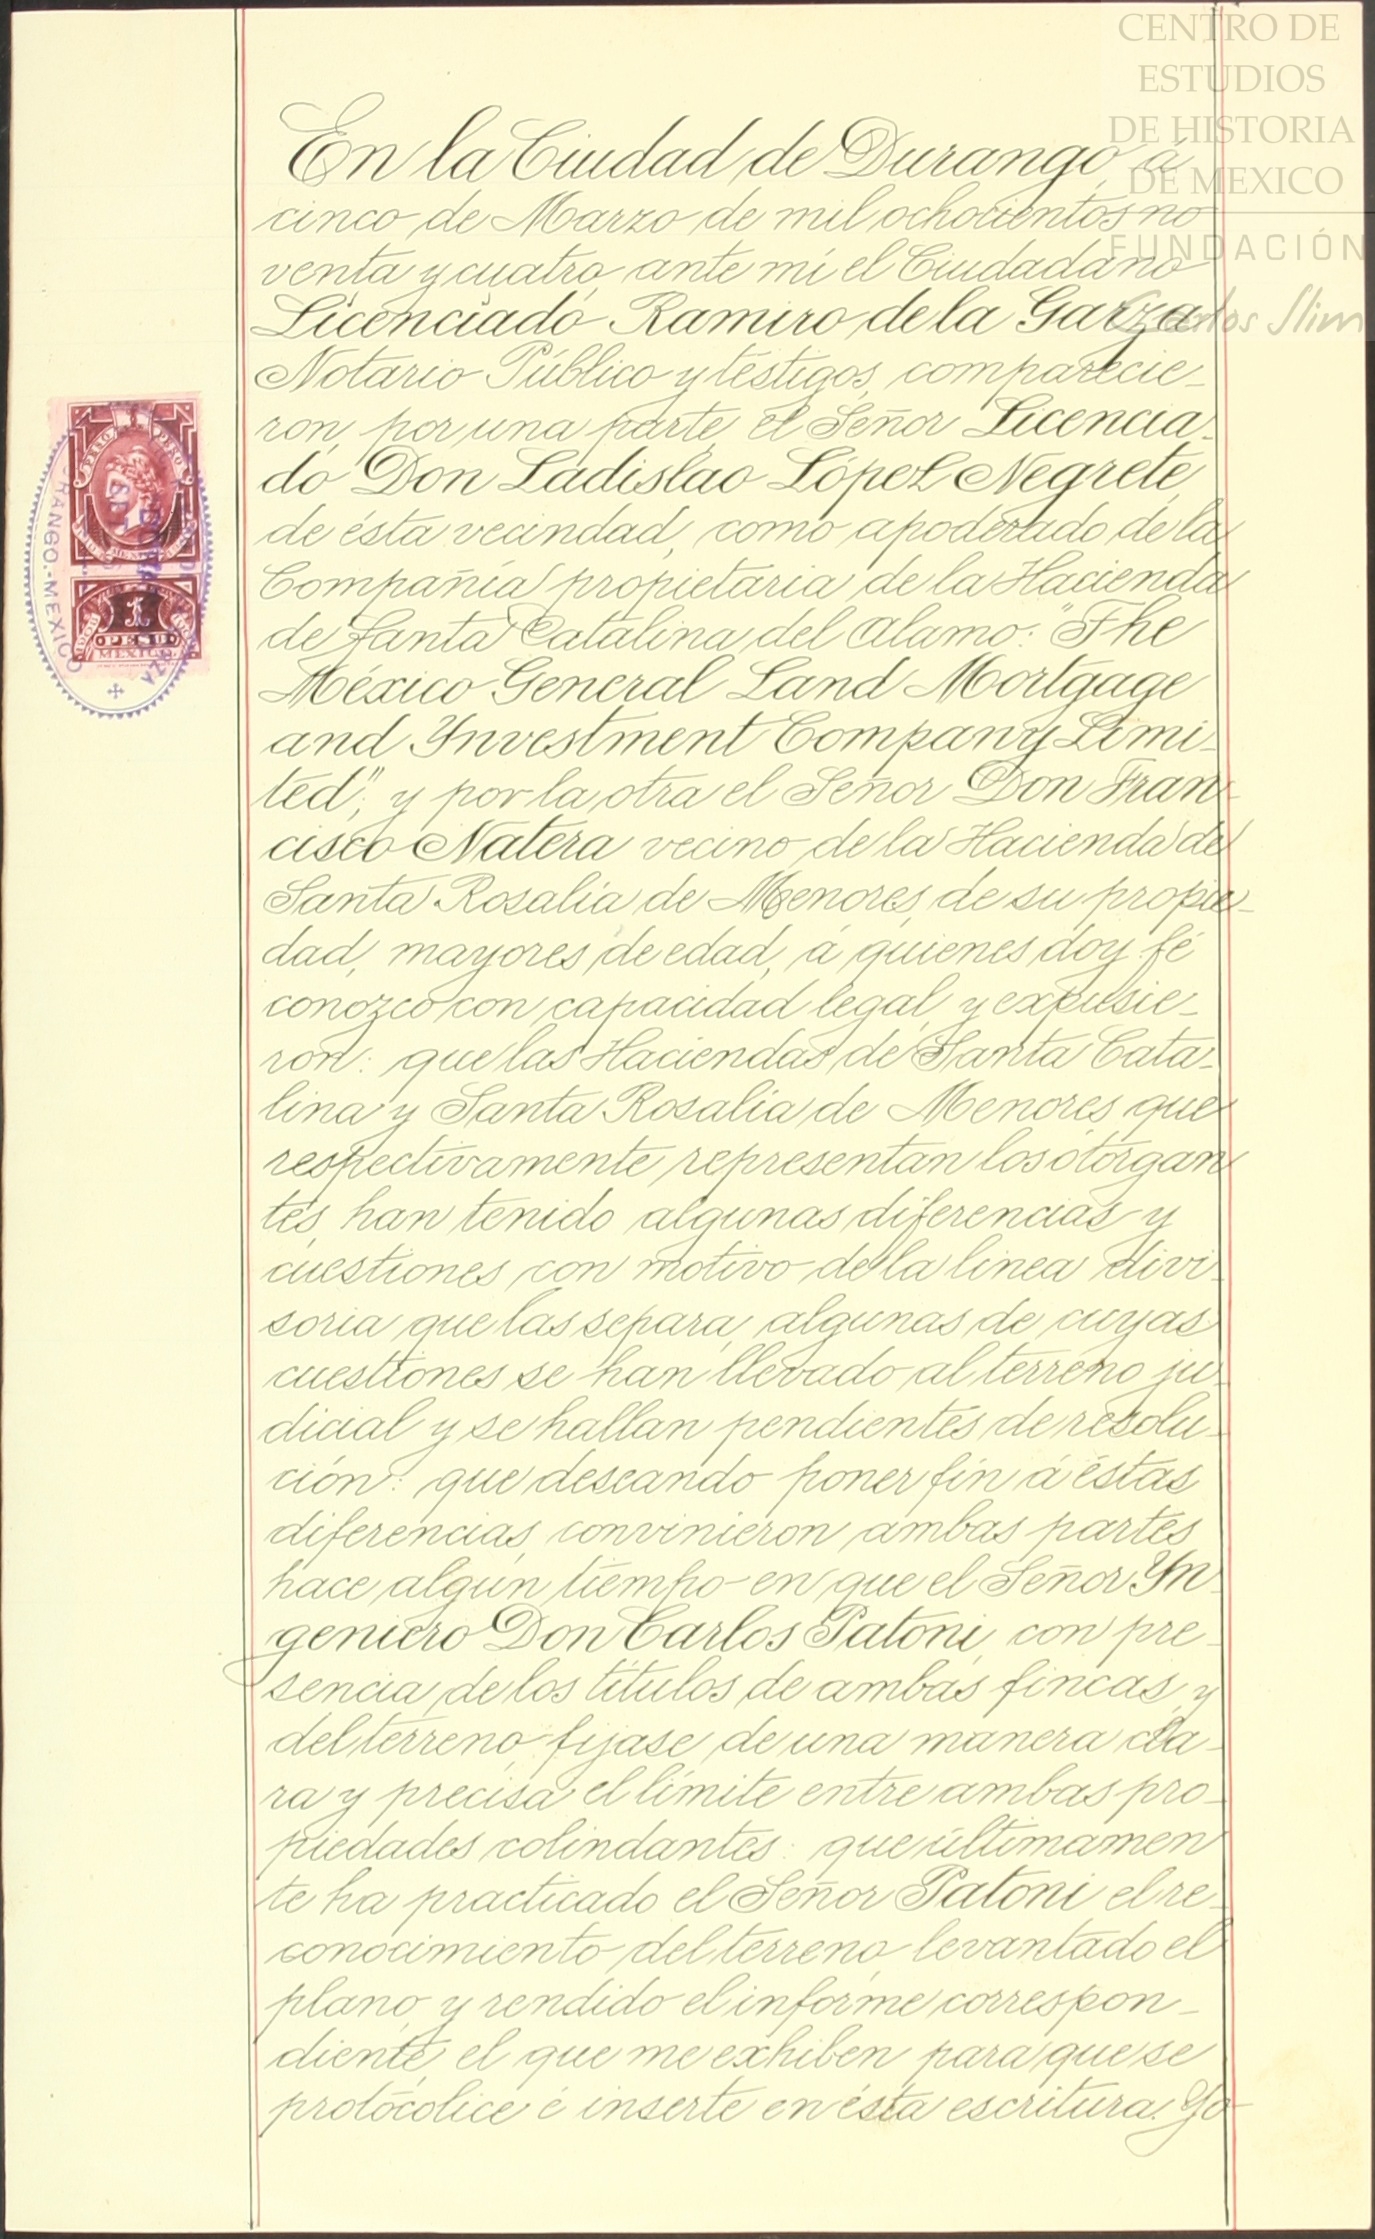 CENTRO DE
ESTUDIOS
DE HISTORIA
DE MEXICO
FUNDACIÓN
Carlos Slim
En la Ciudad de Durango, á
cinco de Marzo de mil ochocientos no
venta y cuatro, ante mí el Ciudadano
Licenciado Ramiro de la Garza
Notario Público y testigos, comparecie-
ron, por una parte, el Señor Licencia-
do Don Ladislao López Negrete,
de ésta vecindad, como apoderado de la
Compañía propietaria de la Hacienda
de Santa Catalina del Alamo: "The
México General Land Mortgage
and Ynvestment Company Limi-
ted"; y por la otra el Señor Don Fran-
cisco Natera vecino de la Hacienda de
Santa Rosalía de Menores, de su propie-
dad, mayores de edad, á quienes doy fé
conozco con capacidad legal, y expusie-
ron: que las Haciendas de Santa Cata-
lina y Santa Rosalía de Menores que
respectivamente representan los otorgan
tes, han tenido algunas diferencias y
cuestiones con motivo de la linea divi-
soria que las separa, algunas de cuyas
cuestiones se han llevado al terreno ju-
dicial y se hallan pendientes de resolu-
ción: que deseando poner fin á éstas
diferencias, convinieron ambas partes
hace algún tiempo en que el Señor Yn-
geniero Don Carlos Patoni, con pre-
sencia de los títulos de ambas fincas y
del terreno fijase de una manera cla-
ra y precisa el límite entre ambas pro-
piedades colindantes: que últimamen
te ha practicado el Señor Patoni el re-
conocimiento del terreno, levantado el
plano, y rendido el informe correspon-
diente, el que me exhiben para que se
protocolice é inserte en ésta escritura. Yo
PESO
1
PESO
MEXICO
DURANGO.-MEXICO